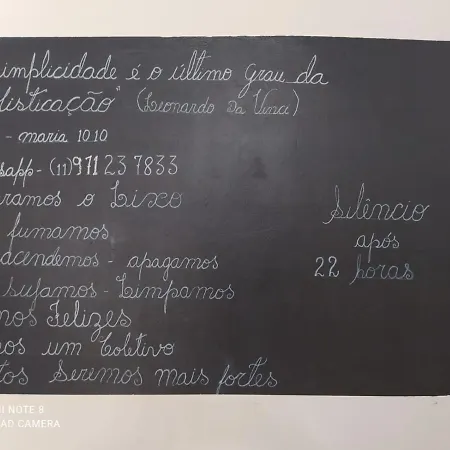 implicidade é o último grau da
fisticação" (Leonardo Da Vinci)
- maria 10.10
sapp - (11) 971 23 7833
ramos o Lixo
fumamos
acendemos - apagamos
sujamos - Limpamos
mos Felizes
os um Coletivo
tos Seremos mais fortes
Silêncio
após
22 horas
I NOTE 8
AD CAMERA